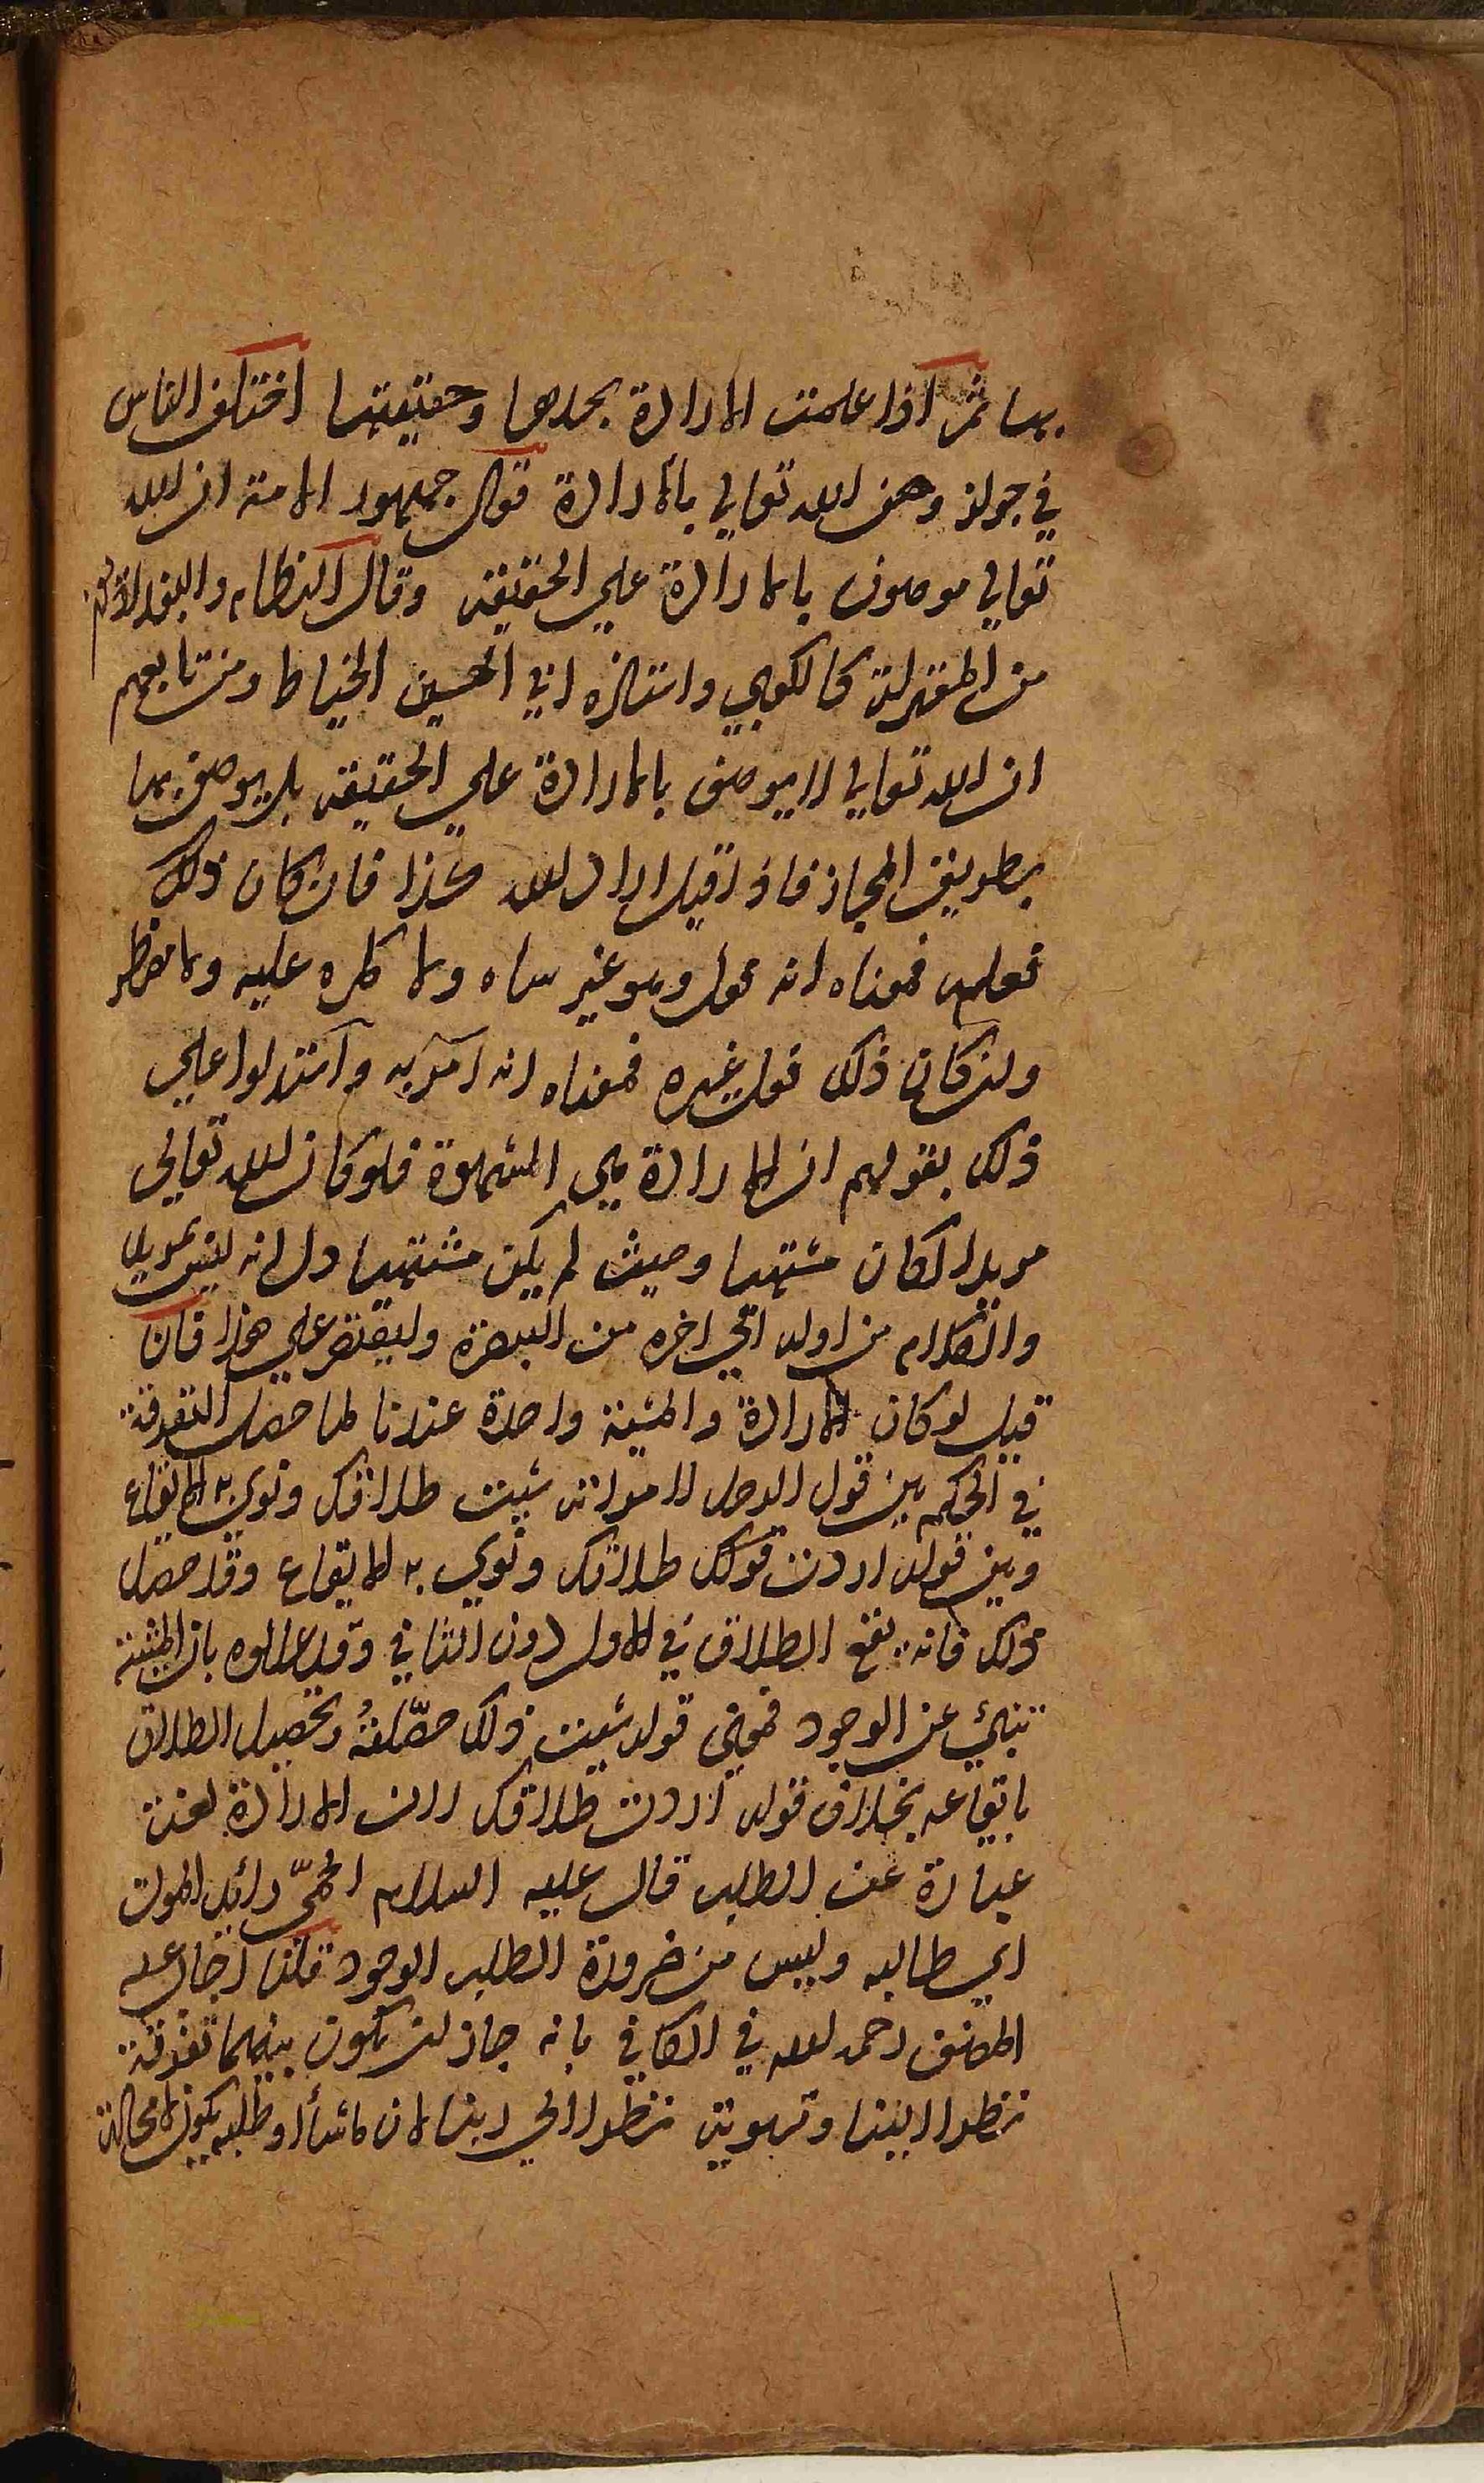 بها ثم اذا علمت الارادة بحدها وحقيقتها اختلف الناس
في جواز وصف الله تعالي بالارادة فقال جمهور الامة ان الله
تعالي موصوف بالارادة علي الحقيقة وقال النظام والبغداديون
من المعتزلة كالكعبي واستاذه ابي الحسين الخياط ومن تابعهم
ان الله تعالي لا يوصف بالارادة علي الحقيقة بل يوصف بها
بطريق المجاز فاذا قيل اراد الله كذا فان كان ذلك
فعله فمعناه انه فعل وهو غير ساه ولا كاره عليه ولا مضطر
وان كان ذلك فعل غيره فمعناه انه امر به واستدلوا علي
ذلك بقولهم ان الارادة هي الشهوة فلو كان الله تعالي
مريدا لكان مشتهيا وحيث لم يكن مشتهيا دل انه ليس بمريد
والكلام من اوله الي اخره من التبصرة وليقتصر علي هذا فان
قيل لو كان الارادة والمشية واحدة عندنا لما حصل التفرقة
في الحكم بين قول الرجل لامراته شيت طلاقك ونوي به الايقاع
وبين قوله اردت قولك طلاقك ونوي به الايقاع وقد حصل
ذلك فانه يقع الطلاق في الاول دون الثاني وقد عللوه بان المشية
تنبئ عن الوجود فمعني قوله شيت ذلك حصّلته وتحصيل الطلاق
بايقاعه بخلاف قوله اردت طلاقك لان الارادة لغة
عبارة عن الطلب قال عليه السلام الحمّي رائد الموت
اي طالبه وليس من ضرورة الطلب الوجود قلنا اجاب عنه
المصنف رحمه الله في الكافي بانه جاز ان يكون بينهما تفرقة
نظرا الينا وتسوية نظرا الي ربنا لان ما شاء او طلبه يكون لا محالة